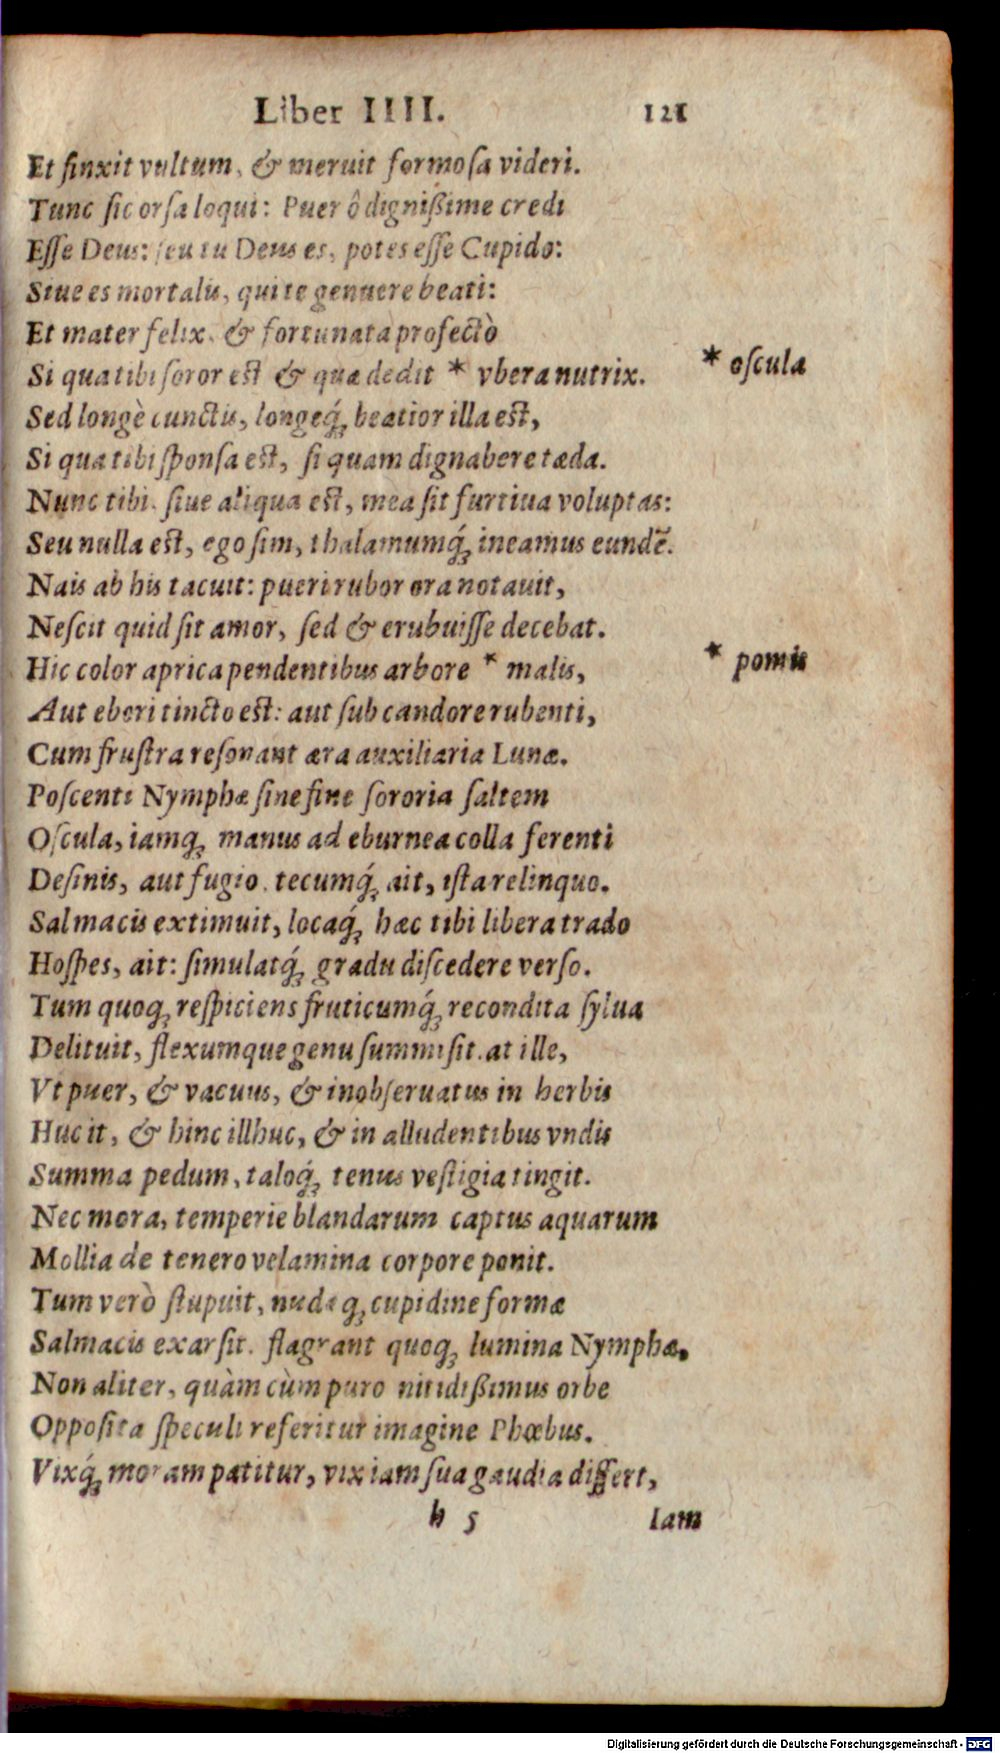 Liber IIII. 121
Et finxit vultum, & meruit formoſa videri.
Tunc ſic orſa loqui: Puer ô dignißime credi
Eſſe Deus: ſeu tu Deus es, potes eſſe Cupido:
Siue es mortalis, qui te genuere beati:
Et mater felix, & fortunata profectò
Si qua tibi ſoror est & quæ dedit * vbera nutrix. * oſcula
Sed longè cunctis, longeq́; beatior illa est,
Si qua tibi ſponſa est, ſi quam dignabere tæda.
Nunc tibi. ſiue aliqua est, mea ſit furtiua voluptas:
Seu nulla est, ego ſim, thalamumq́; ineamus eundẽ.
Nais ab his tacuit: pueri rubor ora notauit,
Neſcit quid ſit amor, ſed & erubuiſſe decebat.
Hic color aprica pendentibus arbore * malis, * pomis
Aut ebori tincto est: aut ſub candore rubenti,
Cum fruſtra reſonant æra auxiliaria Lunæ.
Poſcenti Nymphæ ſine fine ſororia ſaltem
Oſcula, iamq; manus ad eburnea colla ferenti
Deſinis, aut fugio. tecumq́; ait, iſta relinquo.
Salmacis extimuit, locaq́; hæc tibi libera trado
Hoſpes, ait: ſimulatq́; gradu diſcedere verſo.
Tum quoq; reſpiciens fruticumq́; recondita ſylua
Delituit, flexumque genu ſummiſit. at ille,
Vt puer, & vacuus, & inobſeruatus in herbis
Huc it, & hinc illhuc, & in alludentibus vndis
Summa pedum, taloq́; tenus veſtigia tingit.
Nec mora, temperie blandarum captus aquarum
Mollia de tenero velamina corpore ponit.
Tum verò ſtupuit, nudæq; cupidine formæ
Salmacis exarſit. flagrant quoq; lumina Nymphæ,
Non aliter, quàm cùm puro nitidißimus orbe
Oppoſita ſpeculi referitur imagine Phœbus.
Vixq́; moram patitur, vix iam ſua gaudia differt,
h 5 Iam
Digitalisierung gefördert durch die Deutsche Forschungsgemeinschaft - DFG